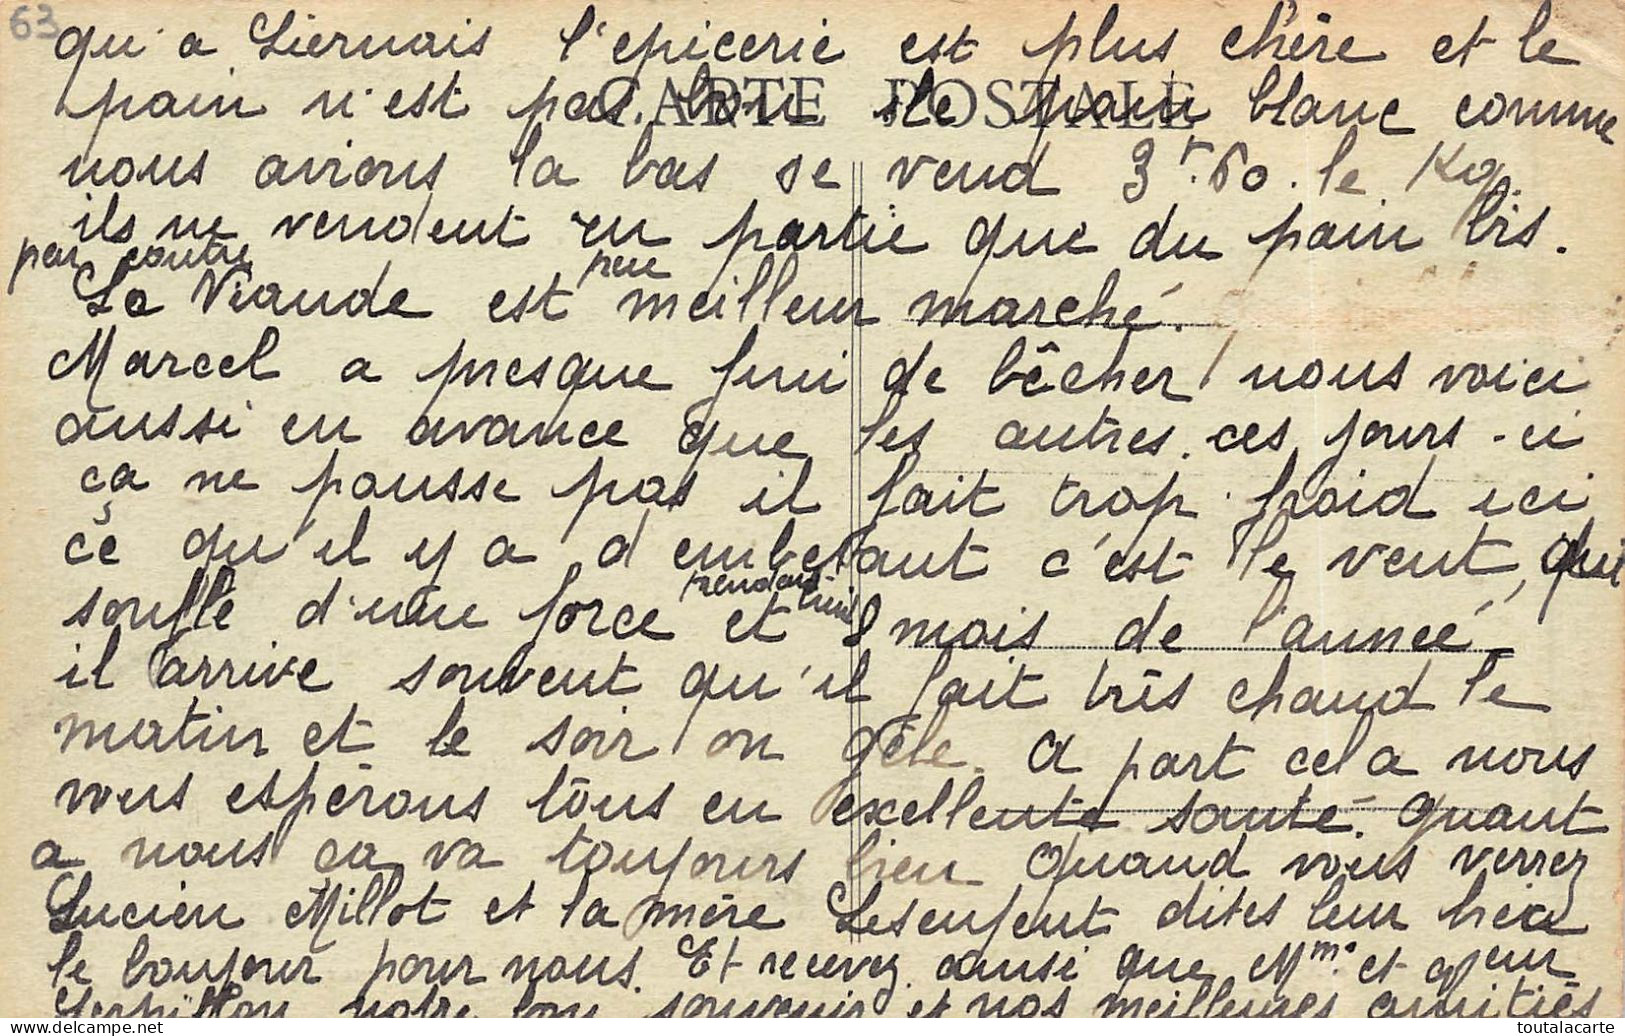 63
qu'a Liernais l'epicerie est plus chère et le
pain n'est pas bon. le pain blanc comme
CARTE POSTALE
nous avions la bas se vend 3f.60. le Kg.
ils ne vendent en partie que du pain bis.
par contre
La Viande est peu meilleur marché.
Marcel a presque fini de bêcher nous voici
aussi en avance que les autres. ces jours-ci
ça ne pousse pas il fait trop froid ici
ce qu'il y a d'embetant c'est le vent, qui
souffle d'une force et pendant huit 8 mois de l'année
il arrive souvent qu'il fait très chaud le
matin et le soir on gèle. A part cela nous
vous espérons tous en excellente santé. Quant
a nous ca va toujours bien Quand vous verrez
Lucien Millot et la mère dites leur bien
le bonjour pour nous. Et recevez ainsi que Mme et
notre bon souvenir et nos meilleures amitiés
toutalacarte